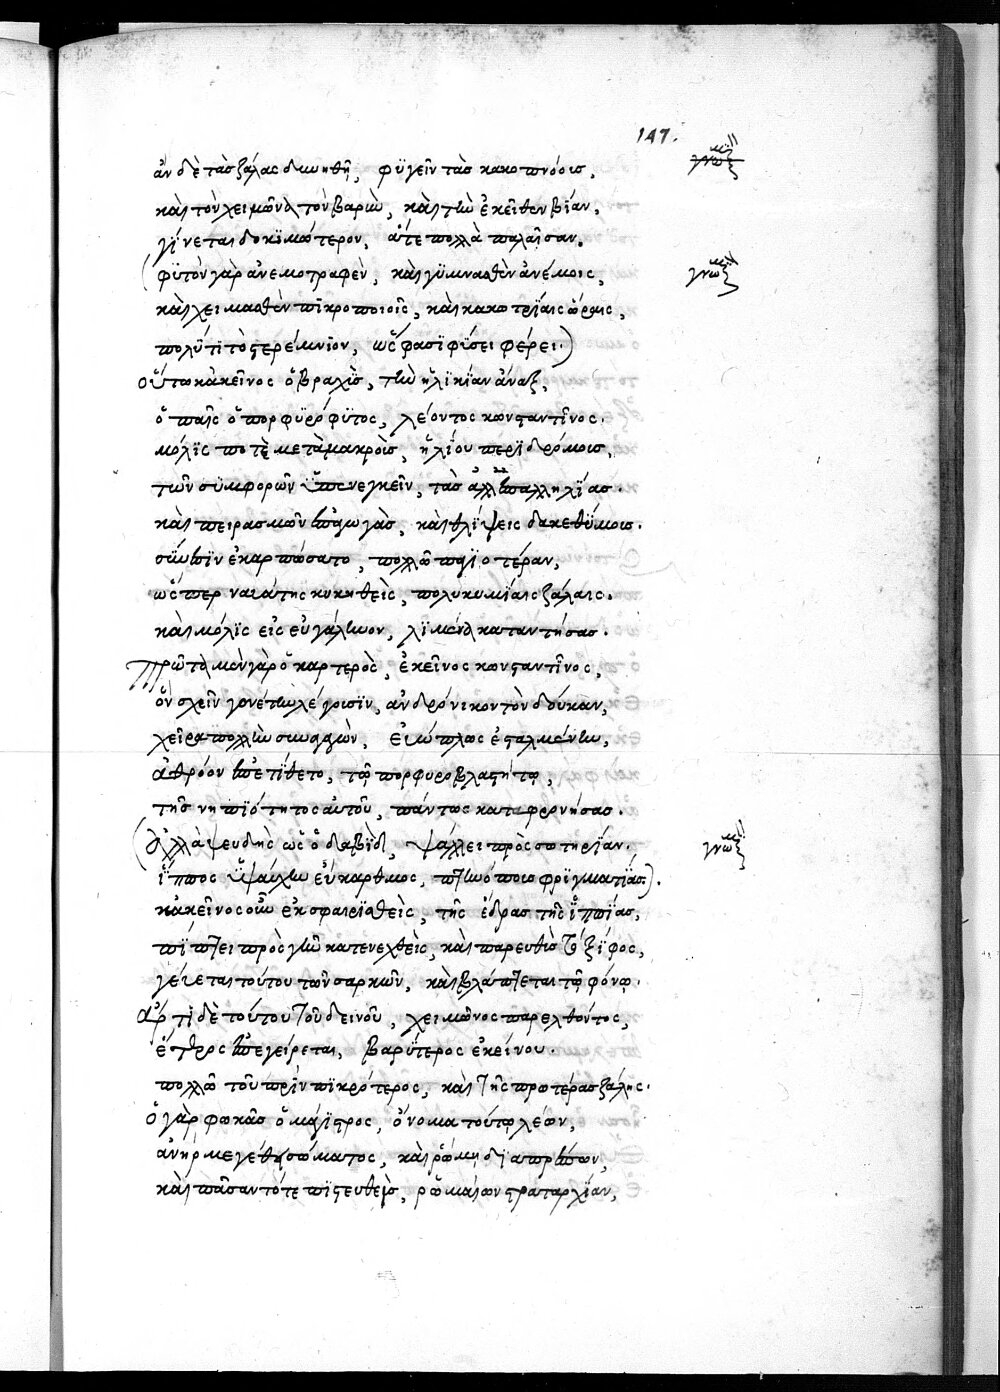 147.
ἀν δὲ τὰς ζάλας δυνηθῇ, φυγεῖν τὰς κακοπνόους,
καὶ τὸν χειμῶνα τὸν βαρὺν, καὶ τὴν ἐκεῖθεν βίαν,
γίνεται δοκιμώτερον, ἅτε πολλὰ παλαῖσαν.
(φυτὸν γὰρ ἀνεμοτραφὲν, καὶ γυμνασθὲν ἀνέμοις,
καὶ χειμασθὲν πικροποιοῖς, καὶ κακοτρίαις ὥραις,
πολύ τι τὸ στερέμνιον, ὡς φασὶ φύσει φέρει.)
οὕτω κἀκεῖνος ὁ βραχὺς, τὴν ἡλικίαν ἄναξ,
ὁ παῖς ὁ πορφυρόφυτος, λέοντος κωνσταντῖνος.
μόλις ποτὲ μετὰ μακροὺς, ἡλίου περιδρόμους,
τῶν συμφορῶν ὑπενεγκεῖν, τὰς ἀλλεπαλληλίας.
καὶ πειρασμῶν ἐπαγωγὰς, καὶ θλίψεις δακεθύμους.
ἐκαρπώσατο, πολλῶ
ὥσπερ ναύτης κυκηθεὶς, πολυκυμίαις ζάλαις.
καὶ μόλις εἰς εὐγάληνον, λιμένα καταντήσας.
Πρῶτα μὲν γὰρ ὁ καρτερὸς, ἐκεῖνος κωνσταντῖνος,
ὃν σχεῖν γονέτην λέγουσιν, ἀνδρόνικον τὸν δούκαν,
χεῖρα πολλὴν συναγαγὼν, ἐνόπλως ἐσταλμένην,
ἀθρόον ἐπετίθετο, τῷ πορφυροβλαστήτῳ,
τῆς νηπιότητος αὐτοῦ, πάντως καταφρονήσας.
(Ἀλλὰ ψευδὴς ὡς ὁ δαβὶδ, ψάλλει πρὸς σωτηρίαν.
ἵππος ὑψαύχην εὔκαρθμος,
κἀκεῖνος οὖν ἐκσφαιρισθεὶς, τῆς ἕδρας τῆς ἱππίας,
πίπτει πρὸς γῆν κατενεχθεὶς, καὶ παρευθὺς τὸ ξίφος,
γεύεται τούτου τῶν σαρκῶν, καὶ βλάπτεται τῷ φόνῳ.
Ἄρτι δὲ τούτου τοῦ δεινοῦ, χειμῶνος παρελθόντος,
ἕτερος ἐπεγείρεται, βαρύτερος ἐκείνου.
πολλῶ τοῦ πρὶν πικρότερος, καὶ τῆς προτέρας ζάλης.
ὁ γὰρ φωκᾶς ὁ μάγιστρος, ὄνομα τούτῳ λέων,
ἀνὴρ μεγέθη σώματος, καὶ ῥώμῃ διαπρέπων,
καὶ πᾶσαν τότε πιστευθεὶς, ῥωμαίων στραταρχίαν,